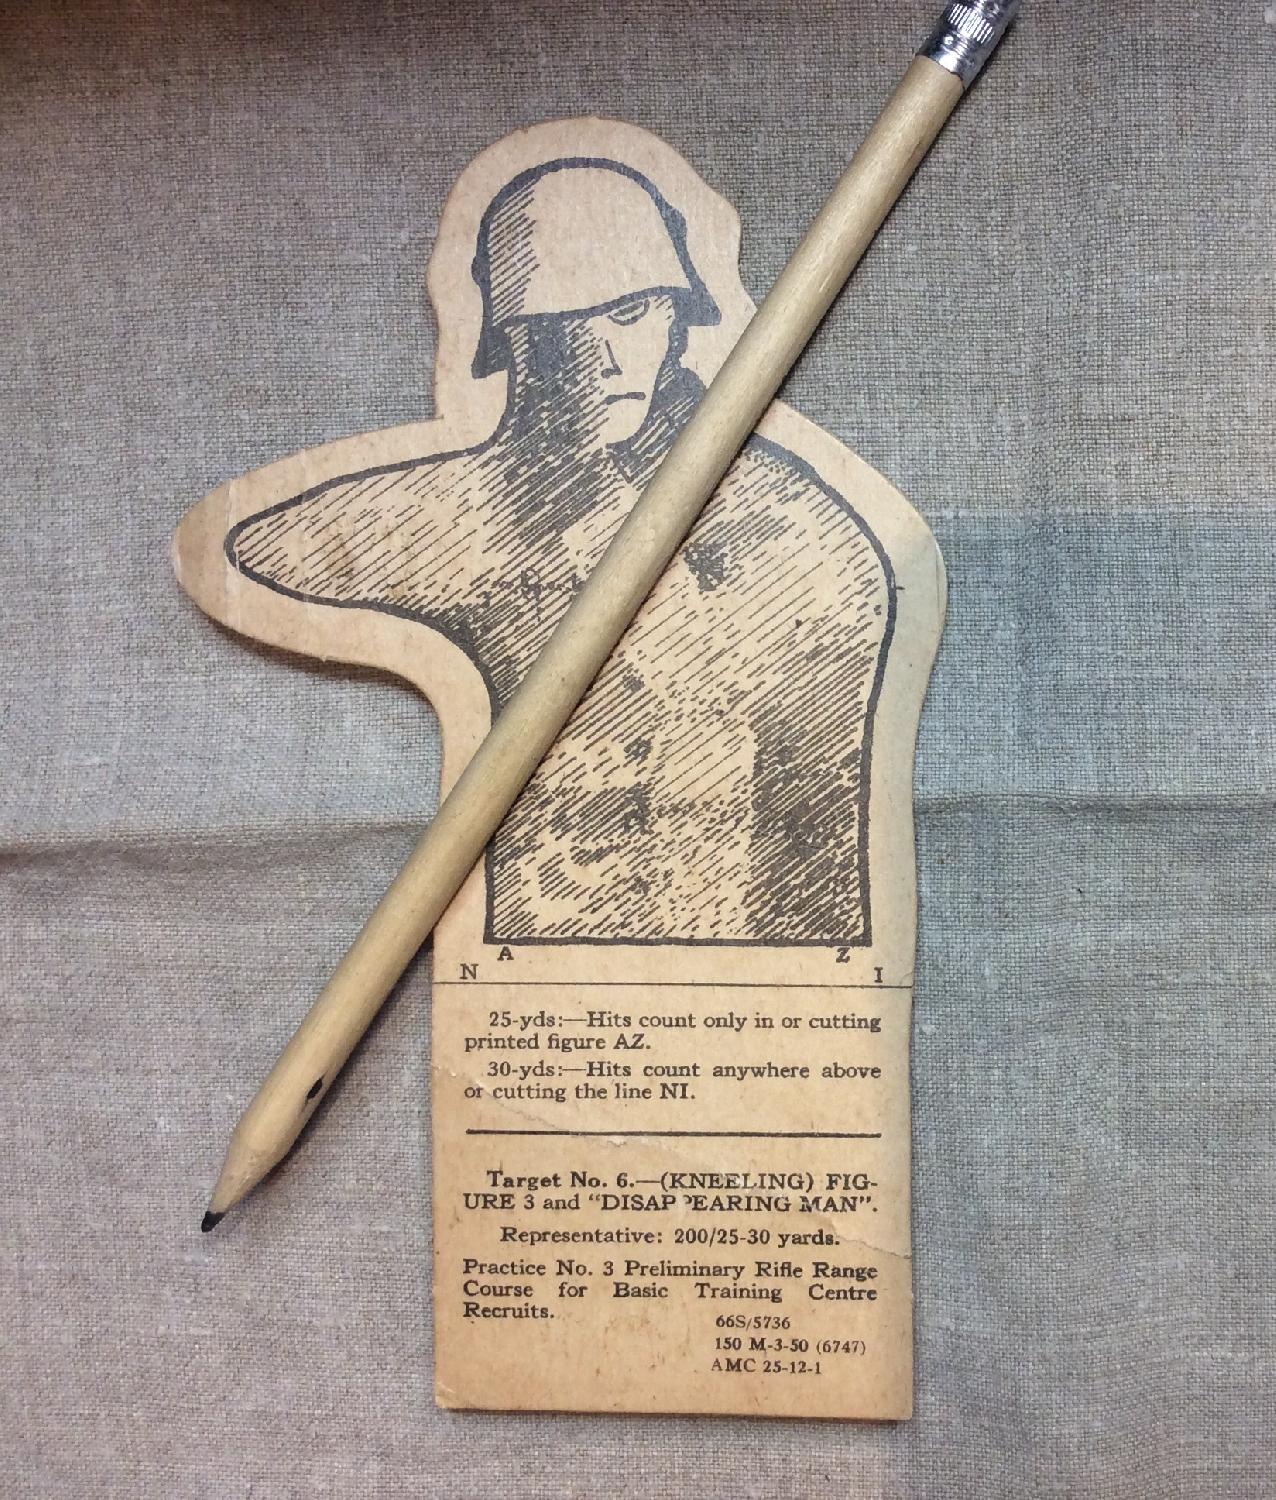 A Z
N I
25-yds:—Hits count only in or cutting
printed figure AZ.
30-yds:—Hits count anywhere above
or cutting the line NI.
Target No. 6.—(KNEELING) FIG-
URE 3 and “DISAPPEARING MAN”.
Representative: 200/25-30 yards.
Practice No. 3 Preliminary Rifle Range
Course for Basic Training Centre
Recruits.
66S/5736
150 M-3-50 (6747)
AMC 25-12-1